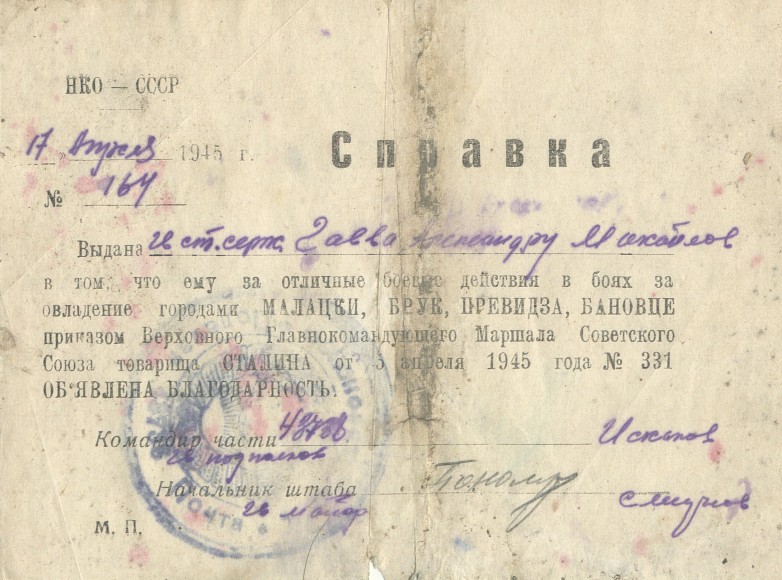 НКО — СССР
17 „ Апреля 1945 г.
Справка
№ 164
Выдана гв ст. серж. Гавва Александру Михайлов
в том, что ему за отличные боевые действия в боях за
овладение городами МАЛАЦКИ, БРУК, ПРЕВИДЗА, БАНОВЦЕ
приказом Верховного Главнокомандующего Маршала Советского
Союза товарища СТАЛИНА от 5 апреля 1945 года № 331
ОБ'ЯВЛЕНА БЛАГОДАРНОСТЬ.
Командир части
гв подполков
Начальник штаба
гв майор
М. П.